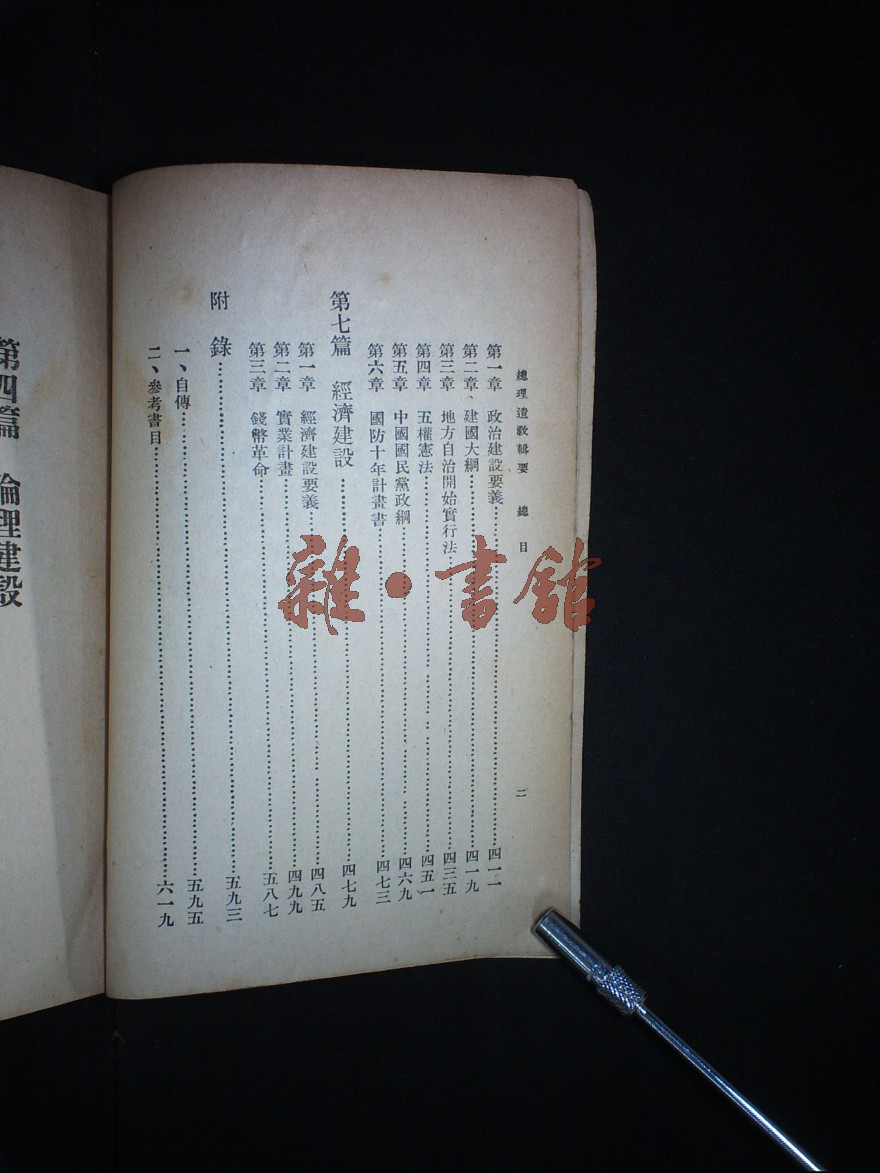 總理遺敎輯要 總目
二
第一章 政治建設要義……四一一
第二章 建國大綱……四一九
第三章 地方自治開始實行法……四三五
第四章 五權憲法……四五一
第五章 中國國民黨政綱……四六九
第六章 國防十年計畫書……四七三
第七篇 經濟建設……四七九
第一章 經濟建設要義……四八五
第二章 實業計畫……四九九
第三章 錢幣革命……五八七
附錄……五九三
一、自傳……五九五
二、參考書目……六一九
第四篇 倫理建設
雜·書館